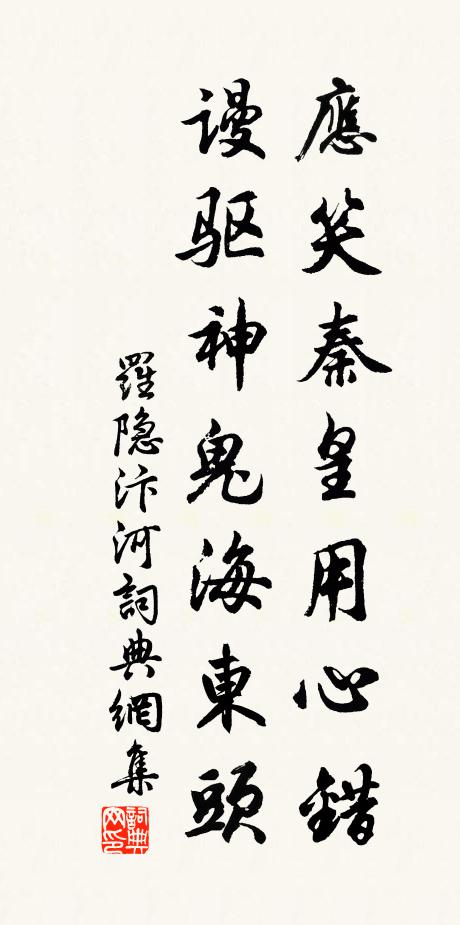 應笑秦皇用心錯
谩驱神鬼海東頭
羅隐汴河詞典網集
詞典网印